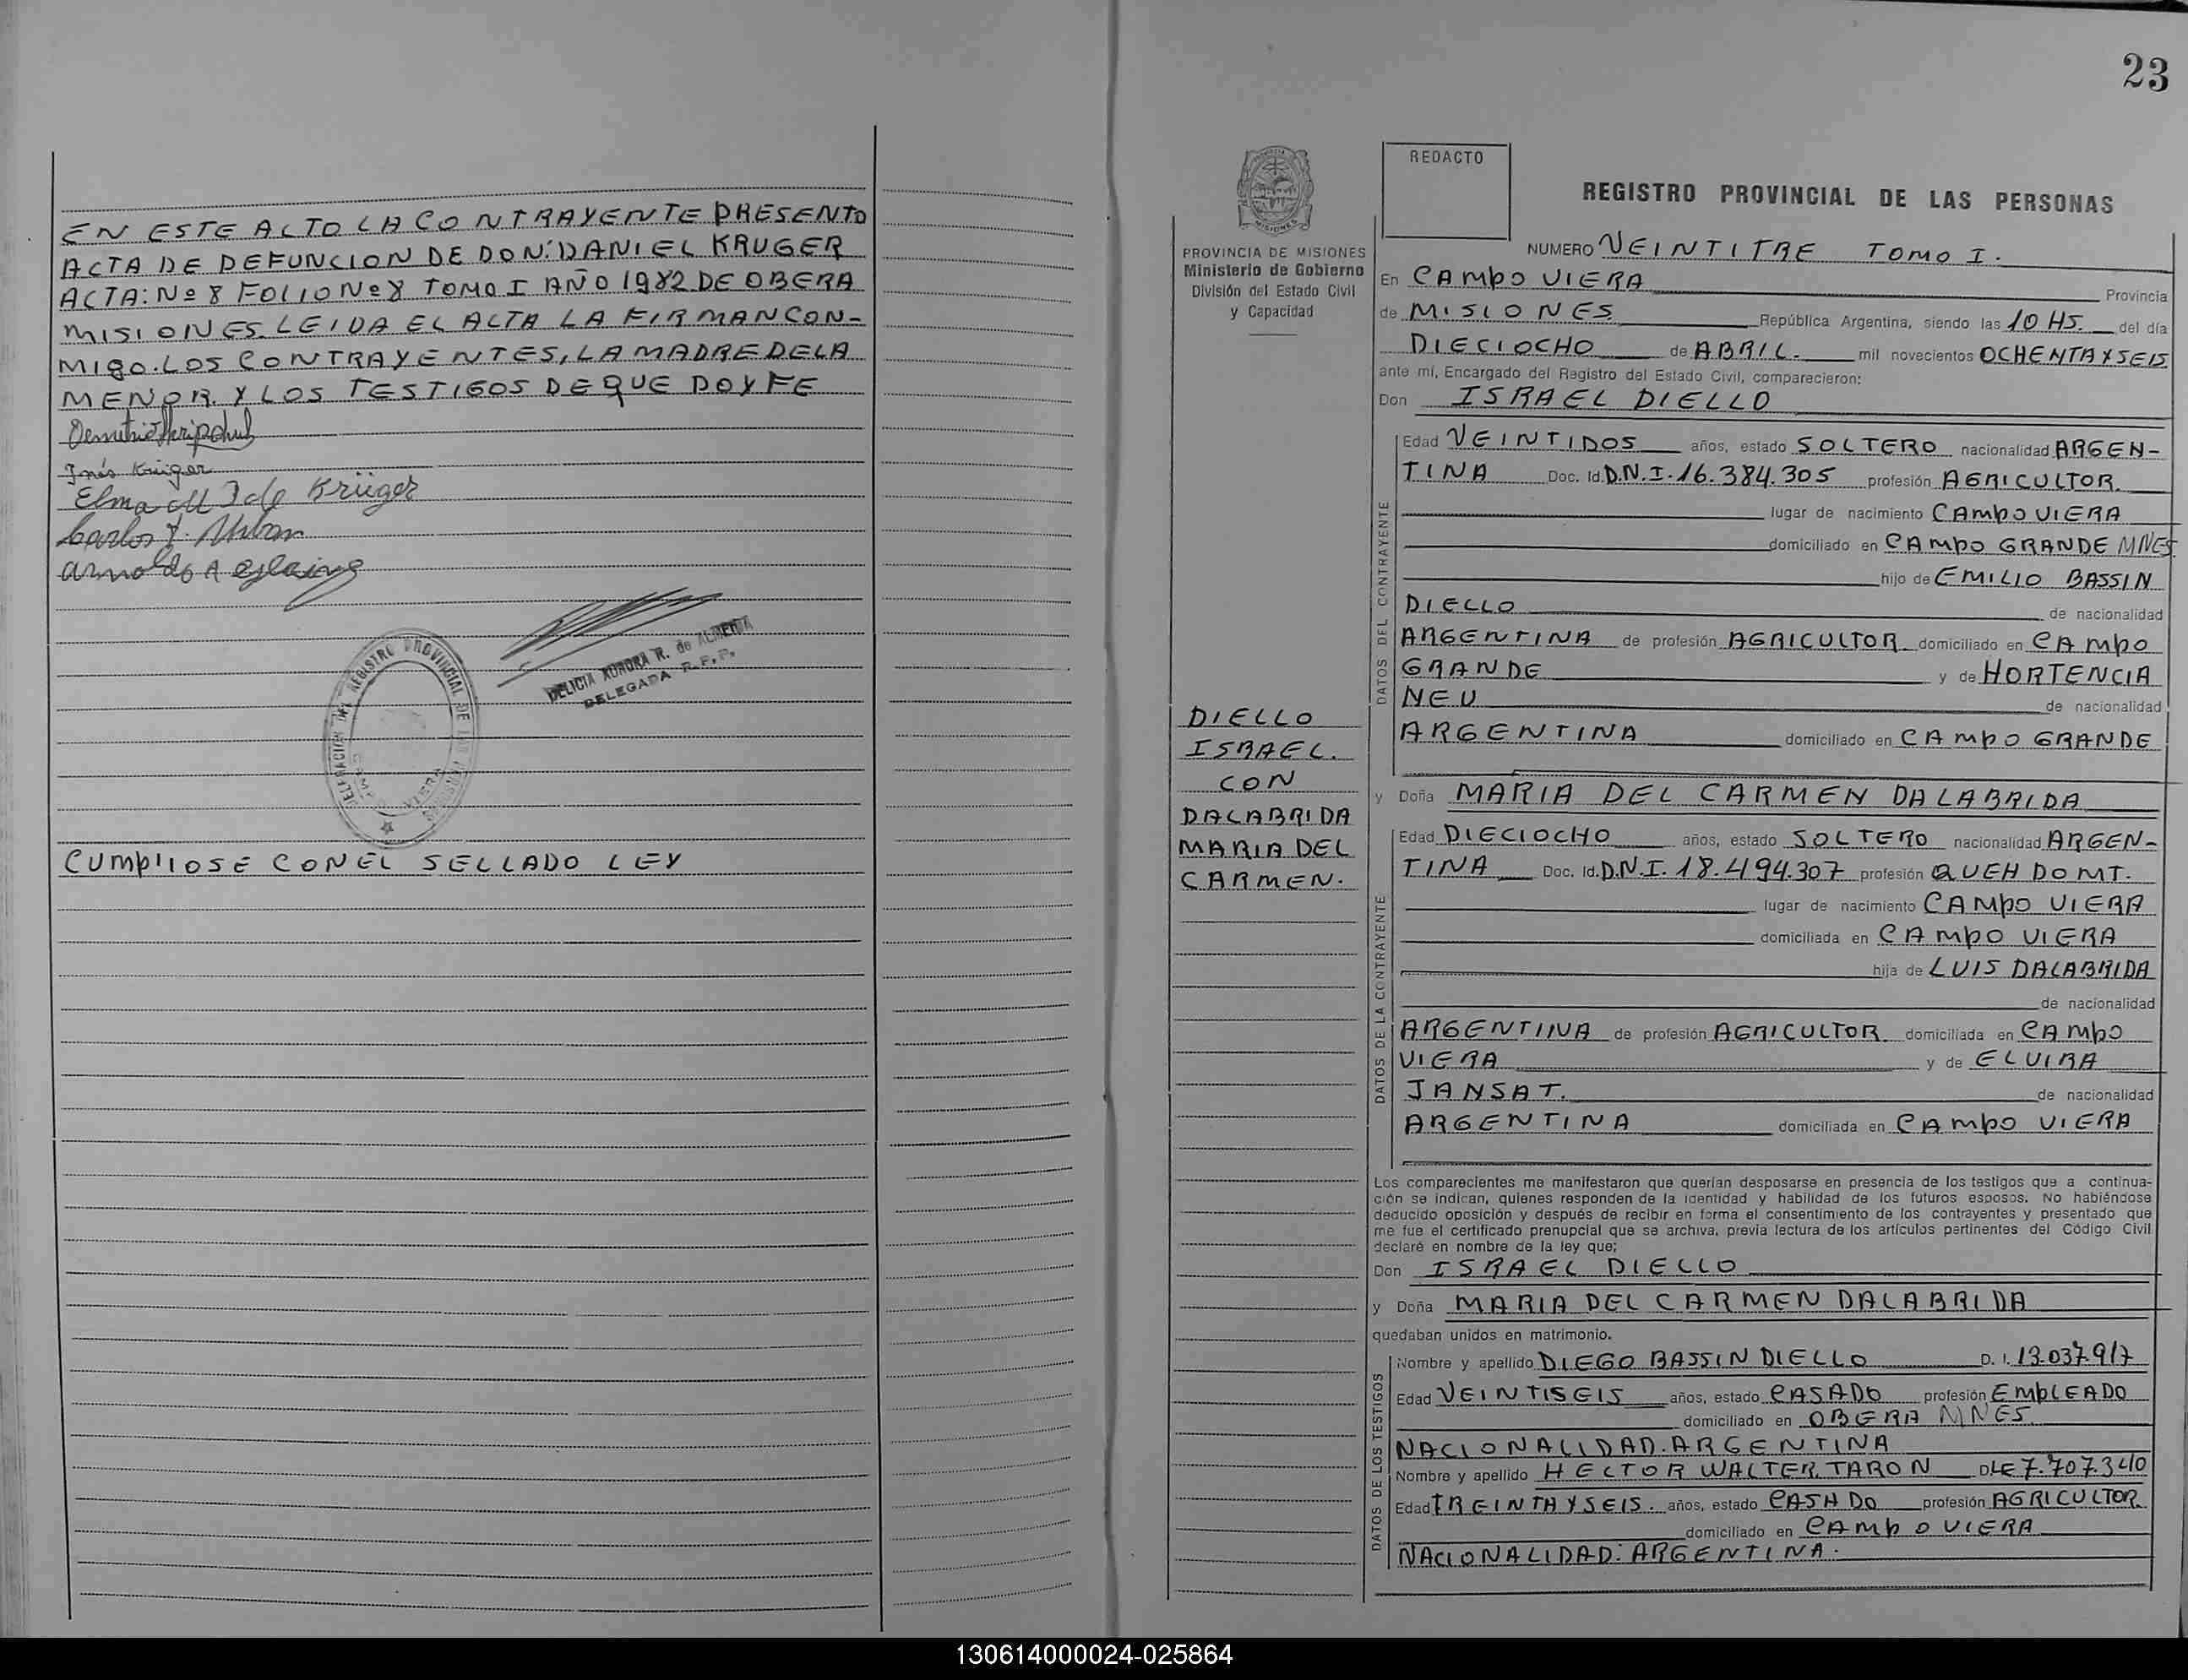 EN ESTE ACTO LA CONTRAYENTE PRESENTO
ACTA DE DEFUNCION DE DON: DANIEL KRUGER
ACTA: Nº 8 FOLIO Nº 8 TOMO I AÑO 1982 DE OBERA
MISIONES. LEIDA EL ACTA LA FIRMAN CON-
MIGO. LOS CONTRAYENTES, LA MADRE DE LA
MENOR. Y LOS TESTIGOS DE QUE DOY FE
Inés Kruger
Elma M de Krüger
Carlos
Arnoldo A
DELICIA AURORA R. de ALMEIDA
DELEGADA R.P.P.
DELEGACION DEL REGISTRO PROVINCIAL DE LAS PERSONAS
CAMPO VIERA
CUMPLIOSE CON EL SELLADO LEY
23
REDACTO
REGISTRO PROVINCIAL DE LAS PERSONAS
MISIONES
PROVINCIA DE MISIONES
Ministerio de Gobierno
División del Estado Civil
y Capacidad
NUMERO VEINTITRE TOMO I.
En CAMPO VIERA Provincia
de MISIONES República Argentina, siendo las 10 HS. del día
DIECIOCHO de ABRIL. mil novecientos OCHENTA Y SEIS
ante mí, Encargado del Registro del Estado Civil, comparecieron:
Don ISRAEL DIELLO
DATOS DEL CONTRAYENTE
Edad VEINTIDOS años, estado SOLTERO nacionalidad ARGEN-
TINA Doc. Id. D.N.I. 16.384.305 profesión AGRICULTOR.
lugar de nacimiento CAMPO VIERA
domiciliado en CAMPO GRANDE MNES
hijo de EMILIO BASSIN
DIELLO de nacionalidad
ARGENTINA de profesión AGRICULTOR domiciliado en CAMPO
GRANDE y de HORTENCIA
NEU de nacionalidad
ARGENTINA domiciliado en CAMPO GRANDE
DIELLO
ISRAEL.
CON
DALABRIDA
MARIA DEL
CARMEN.
y Doña MARIA DEL CARMEN DALABRIDA
DATOS DE LA CONTRAYENTE
Edad DIECIOCHO años, estado SOLTERO nacionalidad ARGEN-
TINA Doc. Id. D.N.I. 18.494.307 profesión QUEH DOMT.
lugar de nacimiento CAMPO VIERA
domiciliada en CAMPO VIERA
hija de LUIS DALABRIDA
de nacionalidad
ARGENTINA de profesión AGRICULTOR domiciliada en CAMPO
VIERA y de ELVIRA
JANSAT. de nacionalidad
ARGENTINA domiciliada en CAMPO VIERA
Los comparecientes me manifestaron que querían desposarse en presencia de los testigos que a continua-
ción se indican, quienes responden de la identidad y habilidad de los futuros esposos. No habiéndose
deducido oposición y después de recibir en forma el consentimiento de los contrayentes y presentado que
me fue el certificado prenupcial que se archiva, previa lectura de los artículos pertinentes del Código Civil
declaré en nombre de la ley que;
Don ISRAEL DIELLO
y Doña MARIA DEL CARMEN DALABRIDA
quedaban unidos en matrimonio.
DATOS DE LOS TESTIGOS
Nombre y apellido DIEGO BASSIN DIELLO D. I. 13.037.917
Edad VEINTISEIS años, estado CASADO profesión EMPLEADO
domiciliado en OBERA MNES
NACIONALIDAD. ARGENTINA
Nombre y apellido HECTOR WALTER TARON DLE 7.707.340
Edad TREINTA Y SEIS. años, estado CASADO profesión AGRICULTOR
domiciliado en CAMPO VIERA
NACIONALIDAD: ARGENTINA.
130614000024-025864